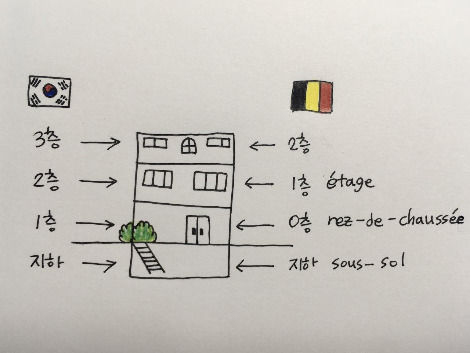 3층
2층
2층
1층 étage
1층
0층 rez-de-chaussée
지하
지하 sous-sol